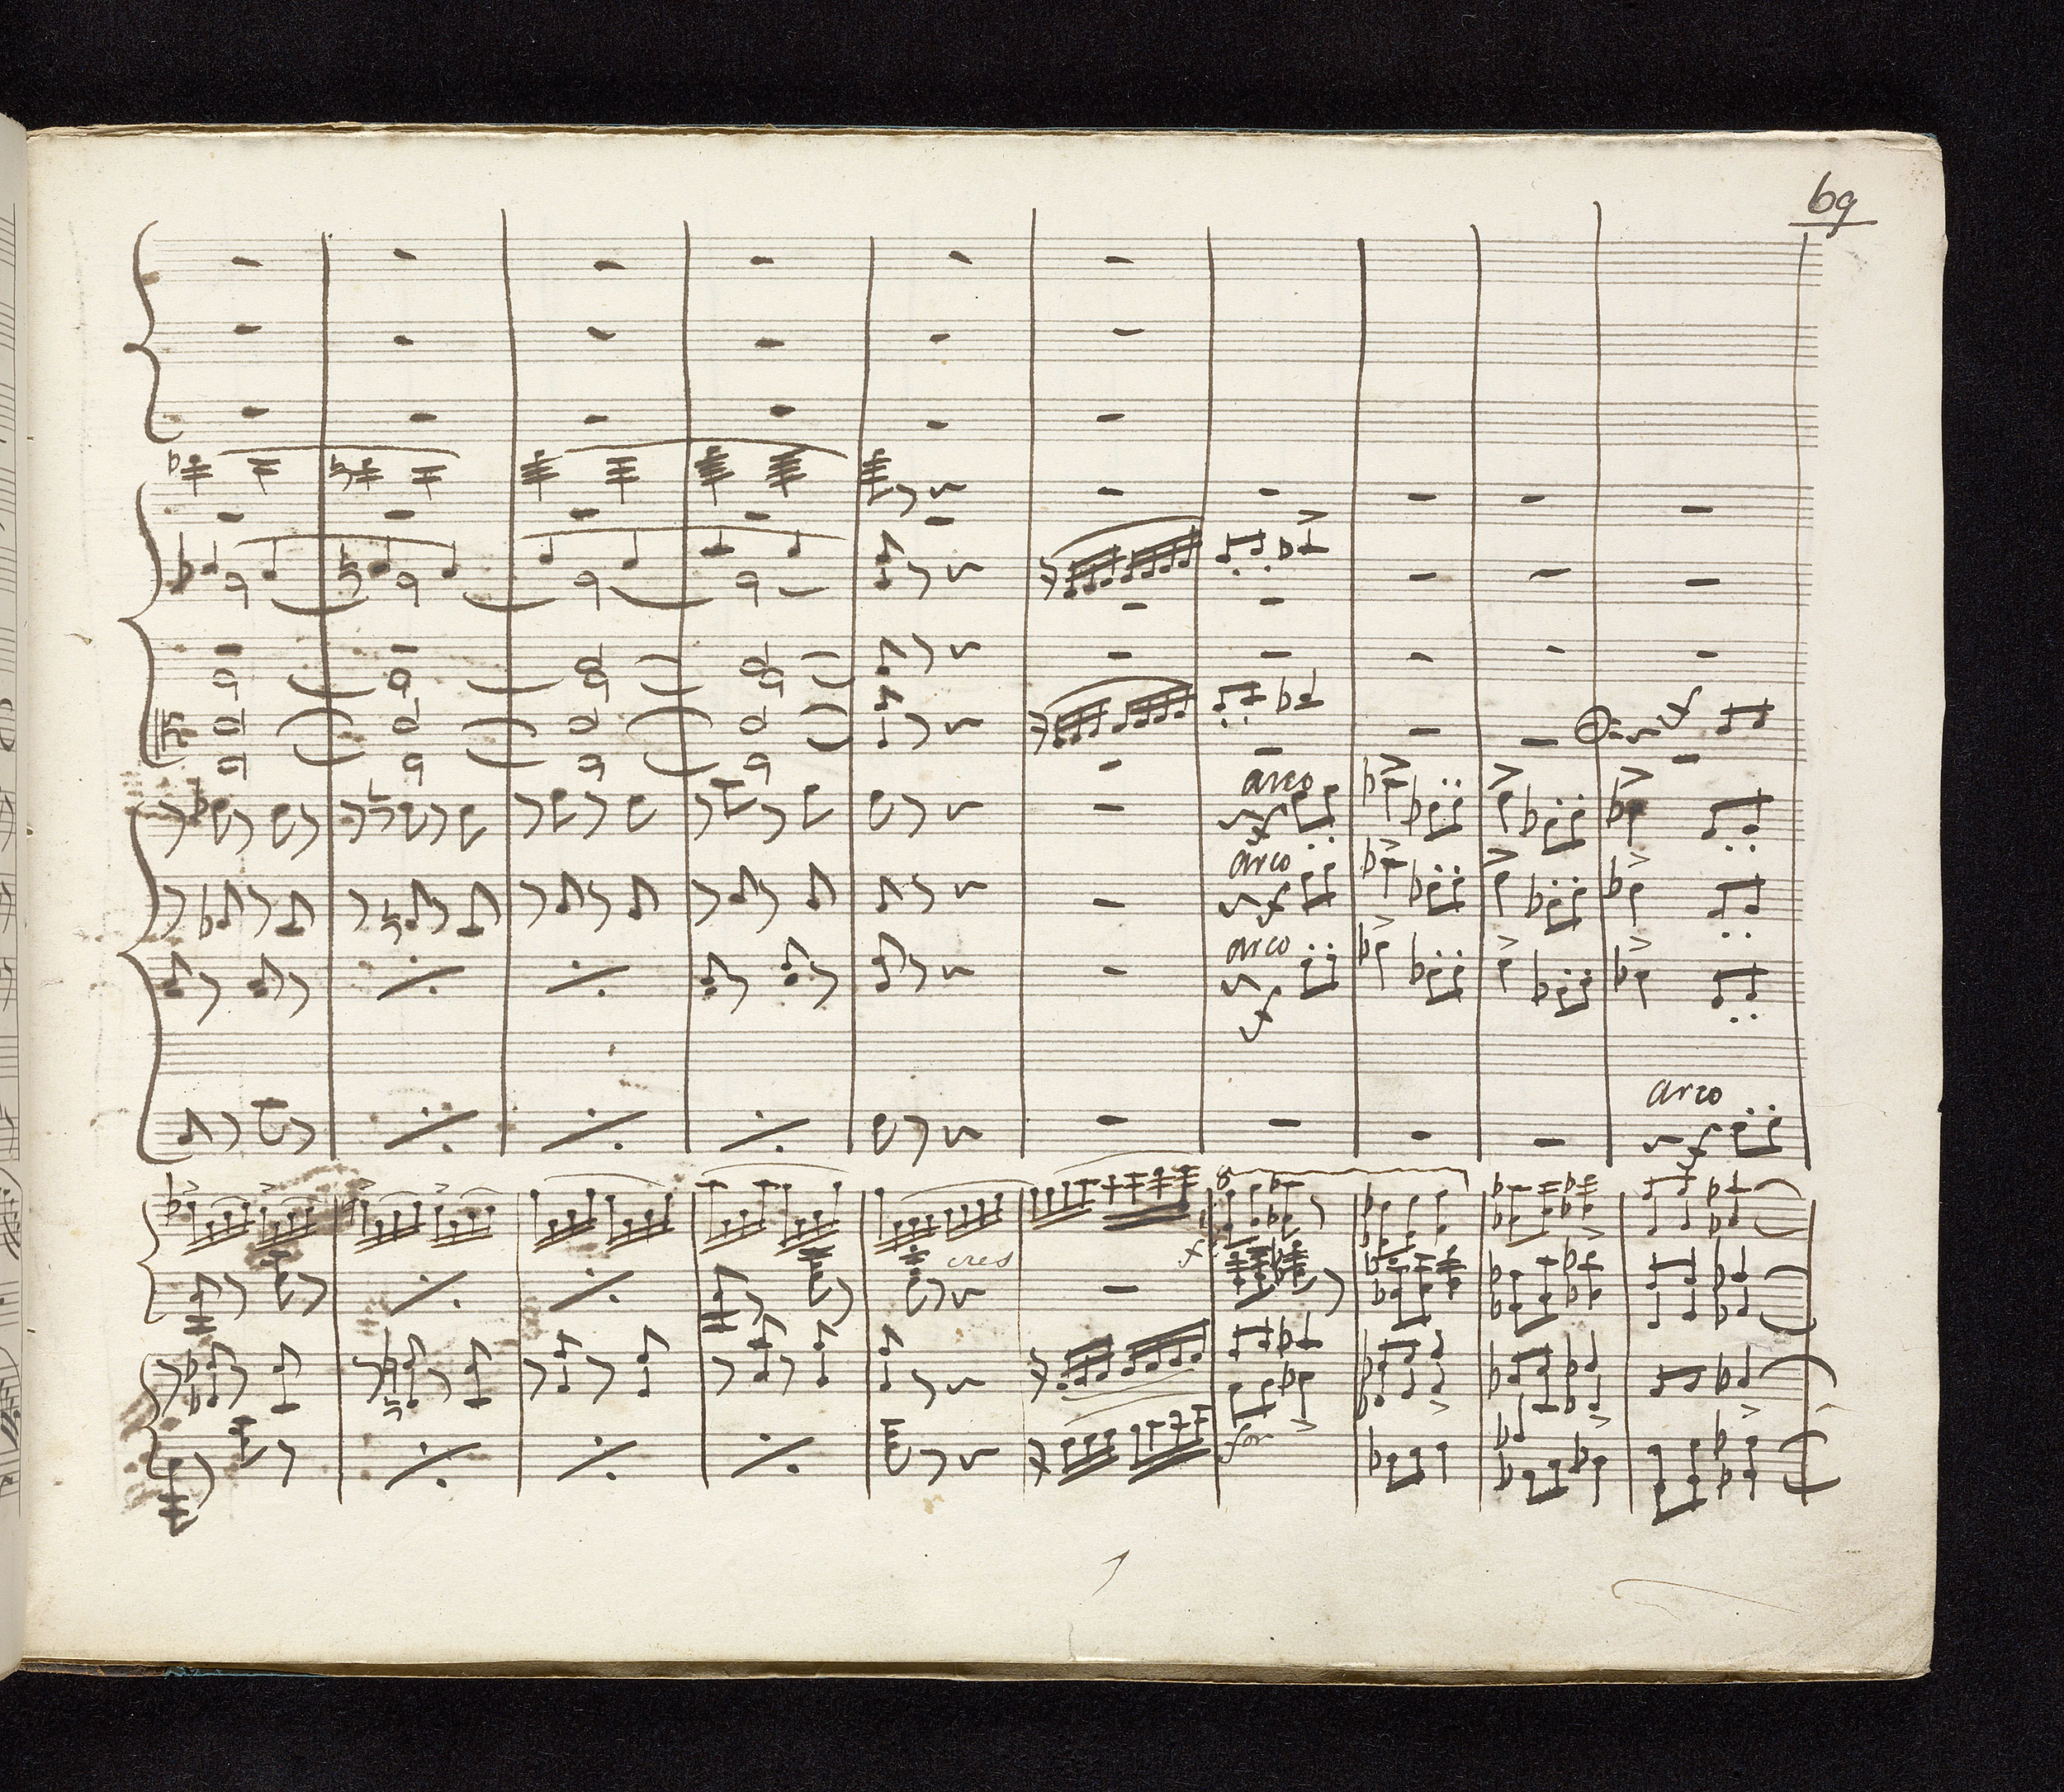 69
f
arco
f
arco
f
arco
f
arco
f
8
cres
f
for